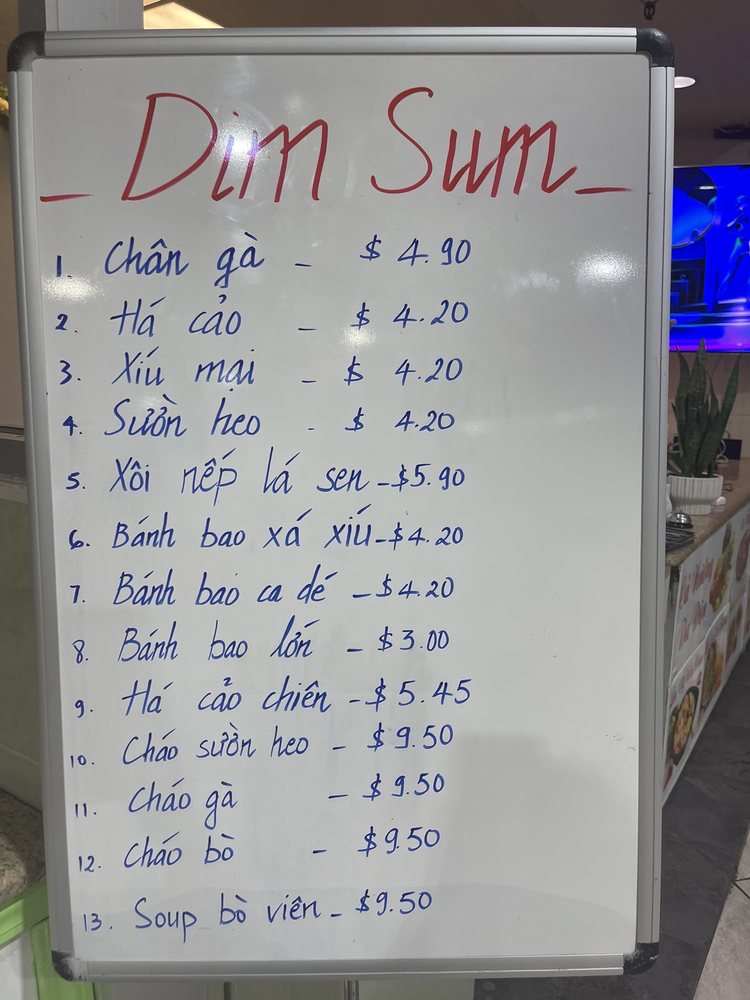 _ Dim Sum _
1. Chân gà - $ 4.90
2. Há cảo - $ 4.20
3. Xíu mại - $ 4.20
4. Sườn heo - $ 4.20
5. Xôi nếp lá sen - $5.90
6. Bánh bao xá xíu - $4.20
7. Bánh bao ca dé - $4.20
8. Bánh bao lớn - $3.00
9. Há cảo chiên - $5.45
10. Cháo sườn heo - $9.50
11. Cháo gà - $9.50
12. Cháo bò - $9.50
13. Soup bò viên - $9.50